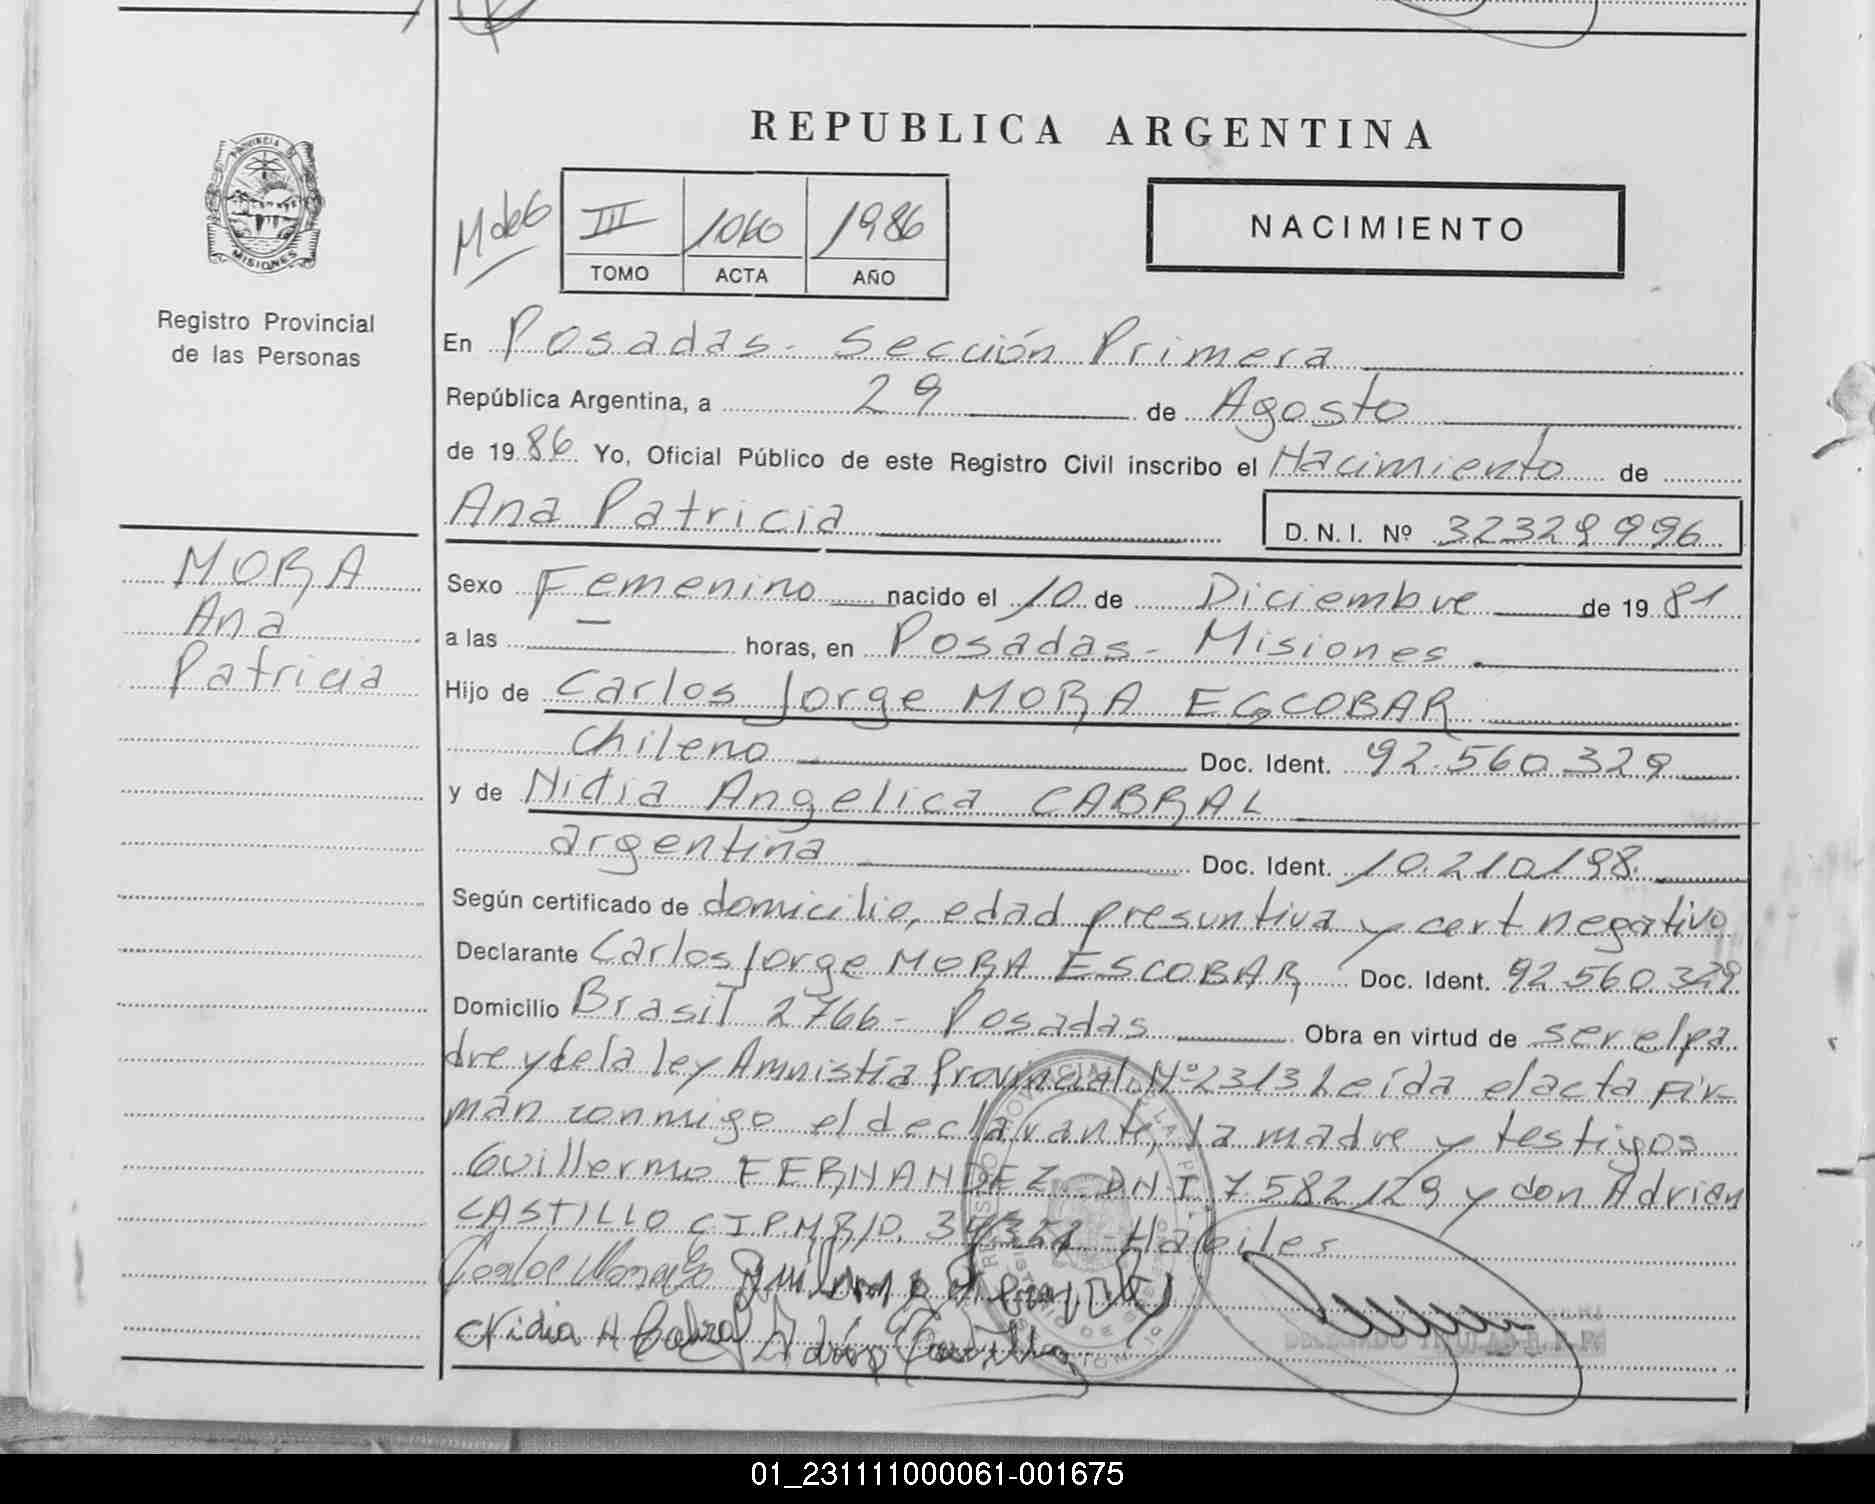 REPUBLICA ARGENTINA
PROVINCIA DE
MISIONES
Registro Provincial
de las Personas
M de G
III 1060 1986
TOMO ACTA AÑO
NACIMIENTO
En Posadas - Sección Primera
República Argentina, a 29 de Agosto
de 1986 Yo, Oficial Público de este Registro Civil inscribo el Nacimiento de
Ana Patricia
D. N. I. Nº 32329996
MORA
Ana
Patricia
Sexo Femenino nacido el 10 de Diciembre de 1981
a las — horas, en Posadas - Misiones
Hijo de Carlos Jorge MORA EGCOBAR
Chileno Doc. Ident. 92.560.329
y de Nidia Angelica CABRAL
argentina Doc. Ident. 10.210.198.
Según certificado de domicilio, edad presuntiva y cert negativo
Declarante Carlos Jorge MORA ESCOBAR Doc. Ident. 92.560.329
Domicilio Brasil 2766 - Posadas Obra en virtud de ser el pa
dre y de la ley Amnistía Provincial Nº 2313 Leída el acta fir-
man conmigo el declarante, la madre y testigos
Guillermo FERNANDEZ DNI 7582129 y don Adrian
CASTILLO C.I.P.M.R/D. 34352 - Habiles
Nidia A Cabral Adrian Castillo
01_231111000061-001675